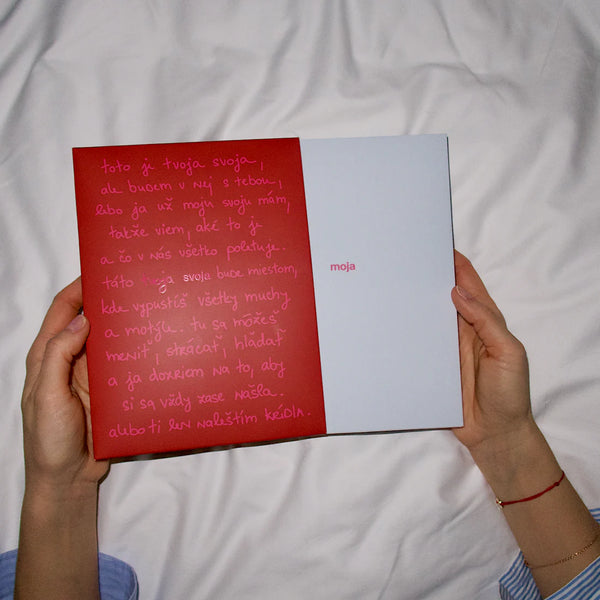 toto je tvoja svoja,
ale budem v nej s tebou,
lebo ja už moju svoju mám,
takže viem, aké to je
a čo v nás všetko poletuje.
táto tvoja svoja bude miestom,
kde vypustíš všetky muchy
a motýle. tu sa môžeš
meniť, strácať, hľadať
a ja dohliem na to, aby
si sa vždy zase našla.
alebo ti len naleštím krídla.
moja